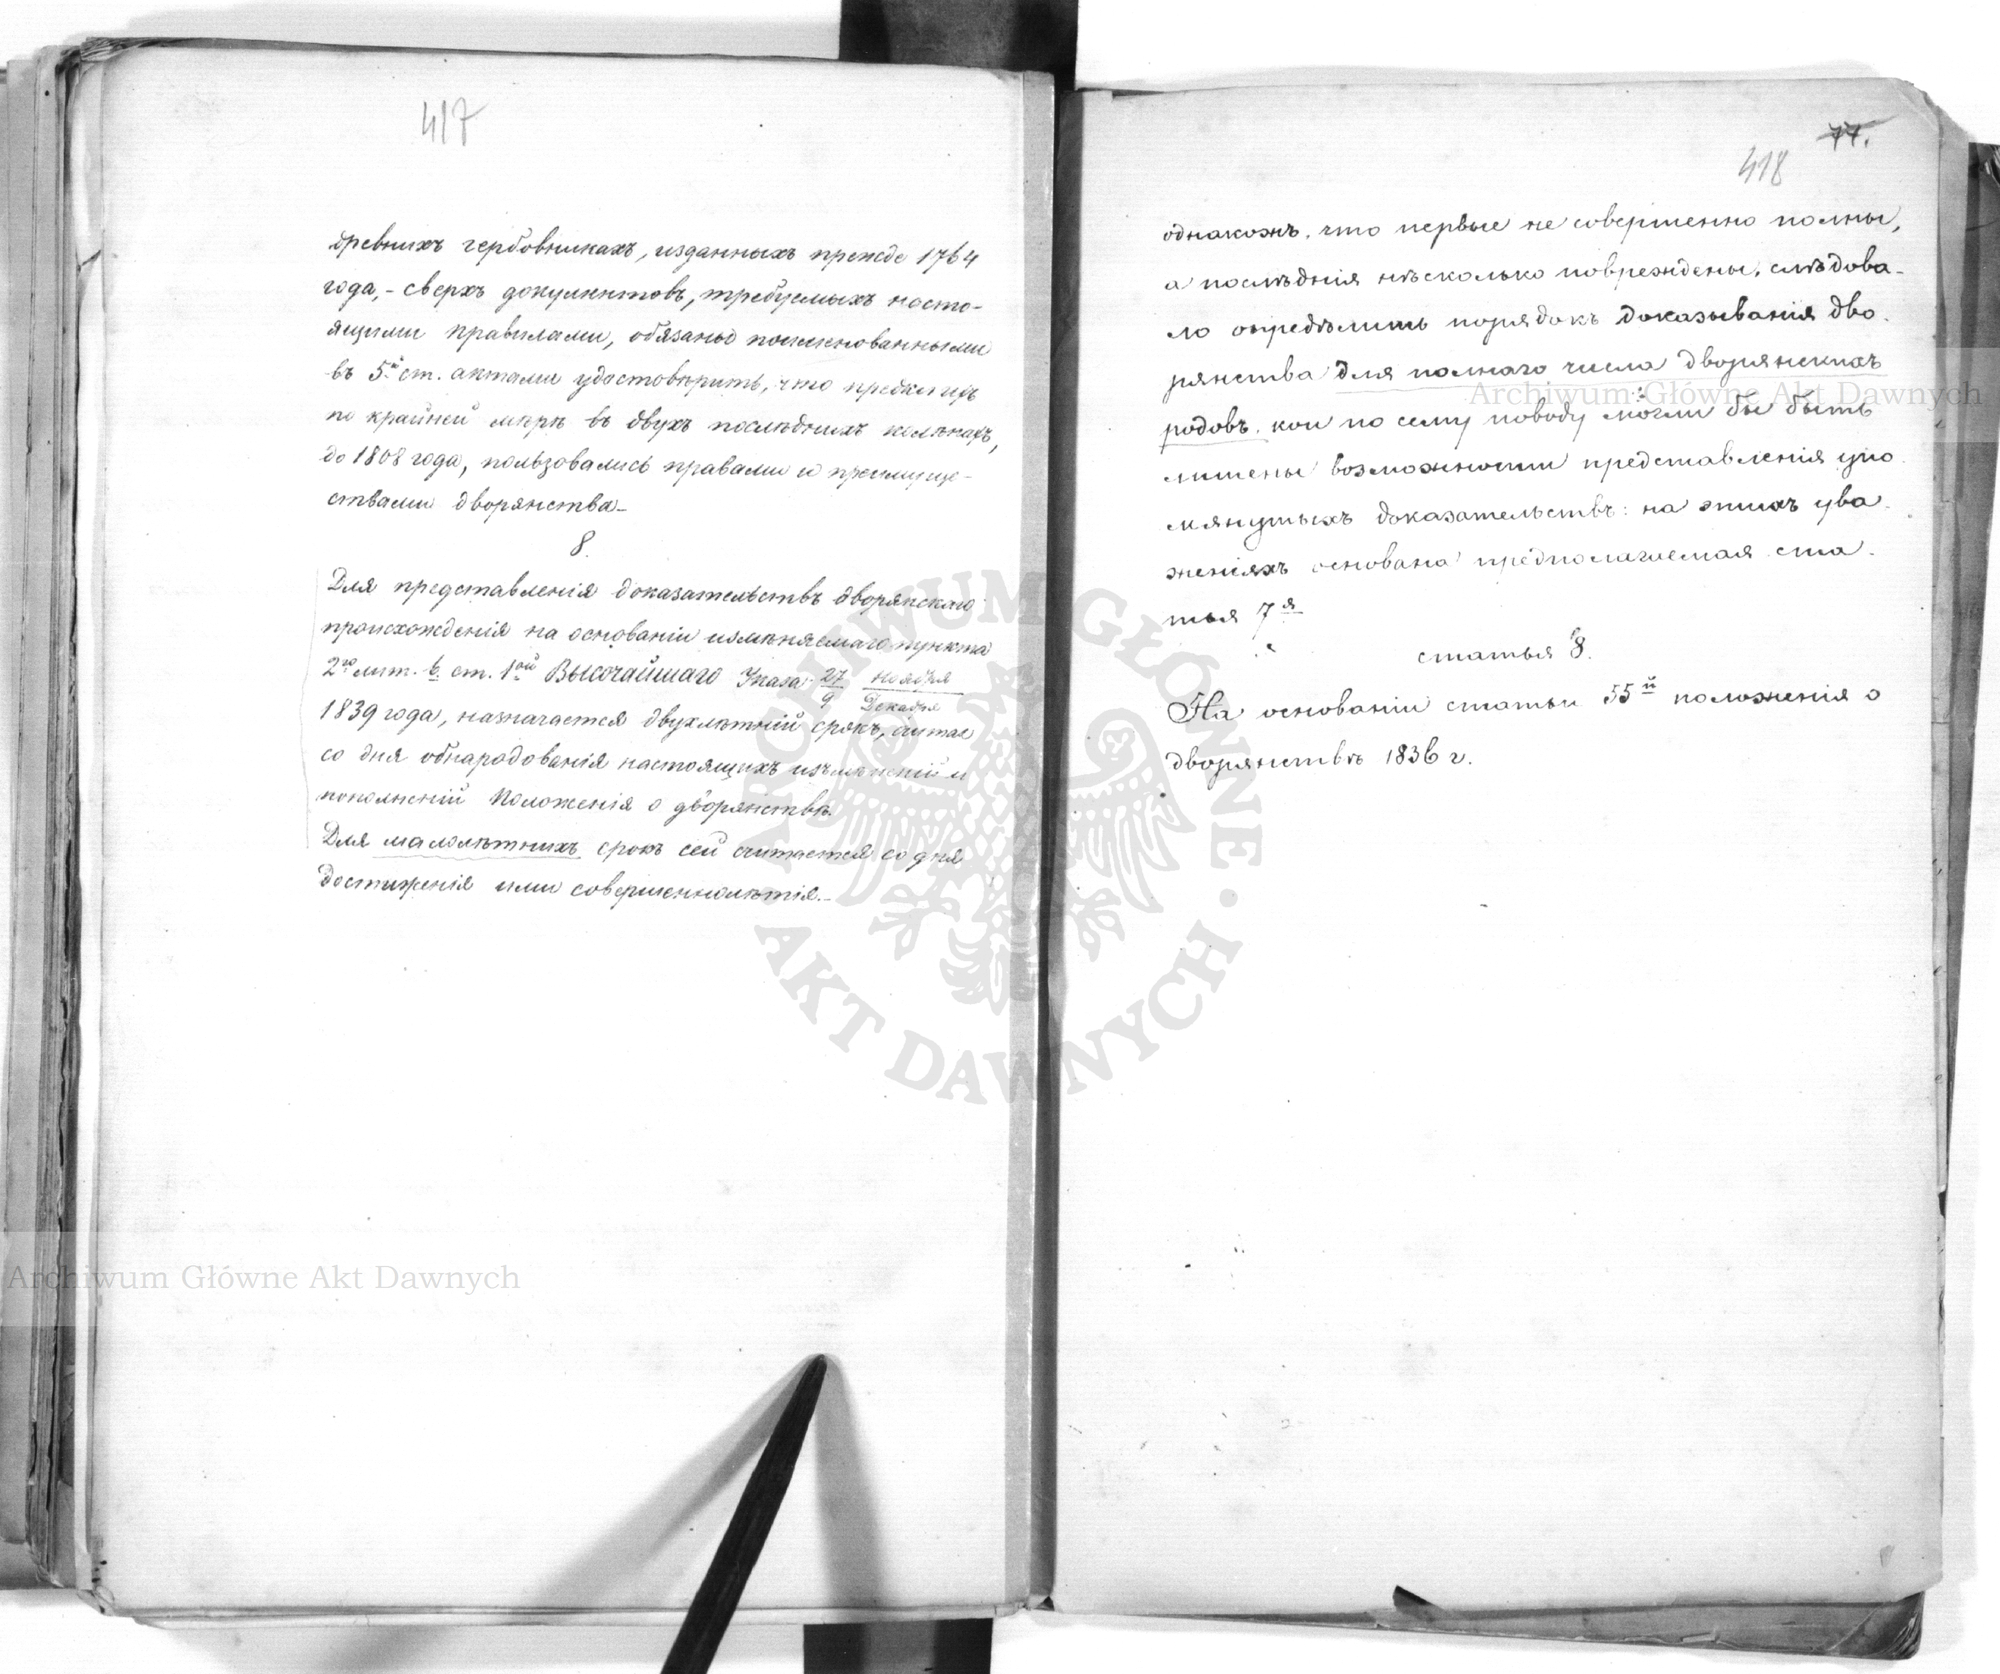 417
древнихъ гербовникахъ, изданныхъ прежде 1764
года, – сверхъ документовъ, требуемыхъ насто-
ящими правилами, обязаны поименованными
въ 5й ст. актами удостовѣрить, что предки ихъ
по крайней мѣрѣ въ двухъ послѣднихъ колѣнахъ,
до 1808 года, пользовались правами и преимуще-
ствами дворянства –
8.
Для представленія доказательствъ дворянскаго
происхожденія на основаніи измѣняемаго пункта
2го лит. б. ст. 1ой Высочайшаго Указа 27 ноября / 9 Декабря
1839 года, назначается двухлѣтній срокъ, считая
со дня обнародованія настоящихъ измѣненій и
пополненій Положенія о дворянствѣ.
Для малолѣтнихъ срокъ сей считается со дня
достиженія ими совершеннолѣтія. –
77.
418
однакожъ, что первые не совершенно полны,
а послѣднія нѣсколько повреждены, слѣдова-
ло опредѣлить порядокъ доказыванія дво-
рянства для полнаго числа дворянскихъ
родовъ, кои по сему поводу могли бы быть
лишены возможности представленія упо-
мянутыхъ доказательствъ: на этихъ ува-
женіяхъ основана предполагаемая ста-
тья 7я
статья 8.
На основаніи статьи 55й положенія о
дворянствѣ 1836 г.
Archiwum Główne Akt Dawnych
Archiwum Główne Akt Dawnych
ARCHIWUM GŁÓWNE AKT DAWNYCH